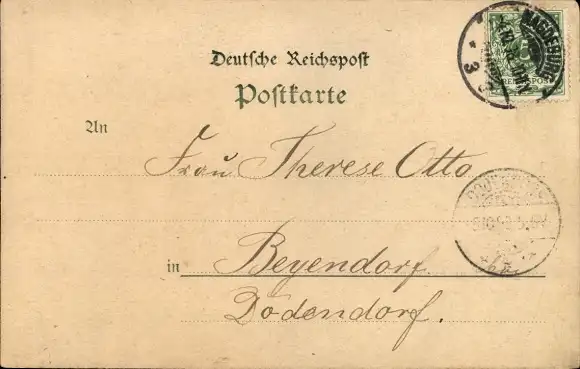 Deutsche Reichspost
Postkarte
MAGDEBURG
3
5
REICHSPOST
An
Frau Therese Otto
in Beyendorf
Dodendorf.